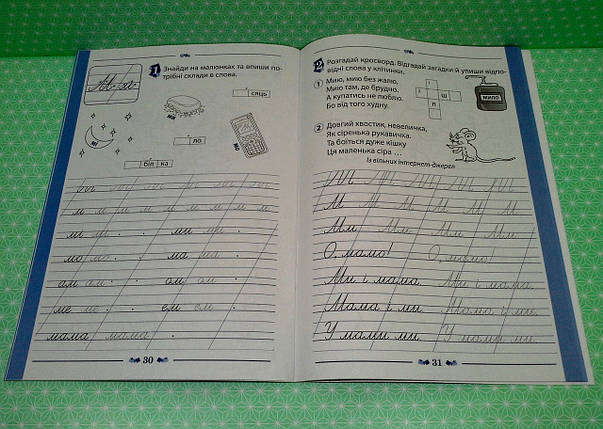 М м
1 Знайди на малюнках та впиши по-
трібні склади в слова.
сяць
ма
мі
ло
мо
біл ка
м м м м м м м м м
мі мі ми ми
мо мо ма ма
ам ам ом ом
ме ме ем ем
мама мама
30
2 Розгадай кросворд. Відгадай загадки й упиши відпо-
відні слова у клітинки.
1 Мию, мию без жалю,
Мию там, де брудно.
А купатись не люблю,
Бо від того худну.
Ш
Я
МИЛО
2 Довгий хвостик, невеличка,
Як сіренька рукавичка.
Та боїться дуже кішку
Ця маленька сіра ...
Із вільних інтернет-джерел
М М М М М М
Ми Ми Ми Ми
О, мамо! О, мамо!
Ми і мама. Ми і мама.
Мама і ми. Мама і ми.
У мами ми. У мами ми.
31